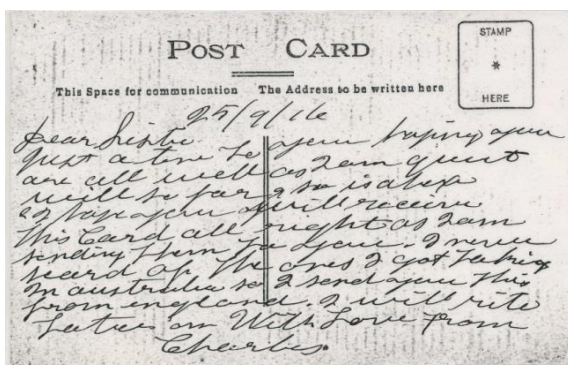 POST CARD
STAMP
*
HERE
This Space for communication The Address to be written here
25/9/16
Dear Sister
Just a line to you hoping you
are all well as I am quit
well so far & so is alex
I hope you will receive
this Card all right as I am
sending them to you. I never
heard of the ones I got taking
in australia so I send you this
from england. I will rite
Later on With Love from
Charles.